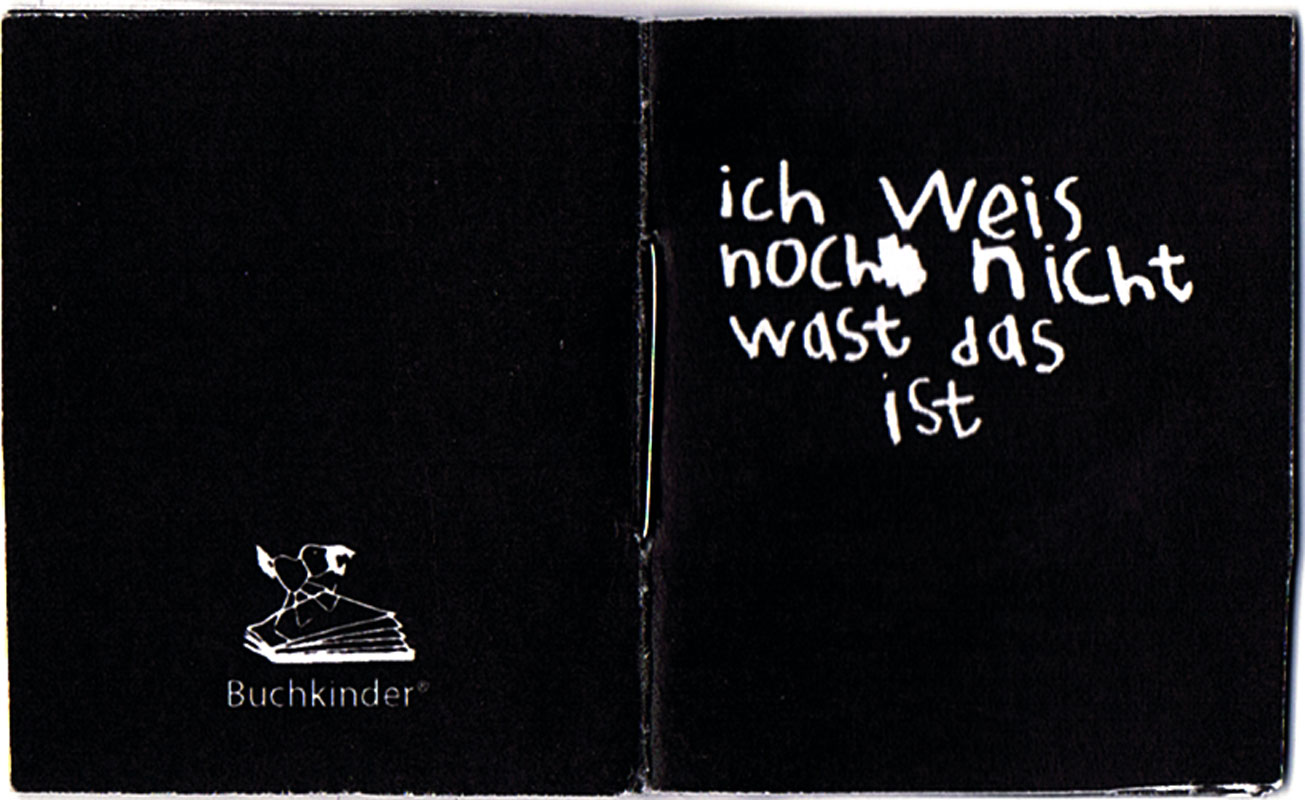 ich weis
noch nicht
wast das
ist
Buchkinder®